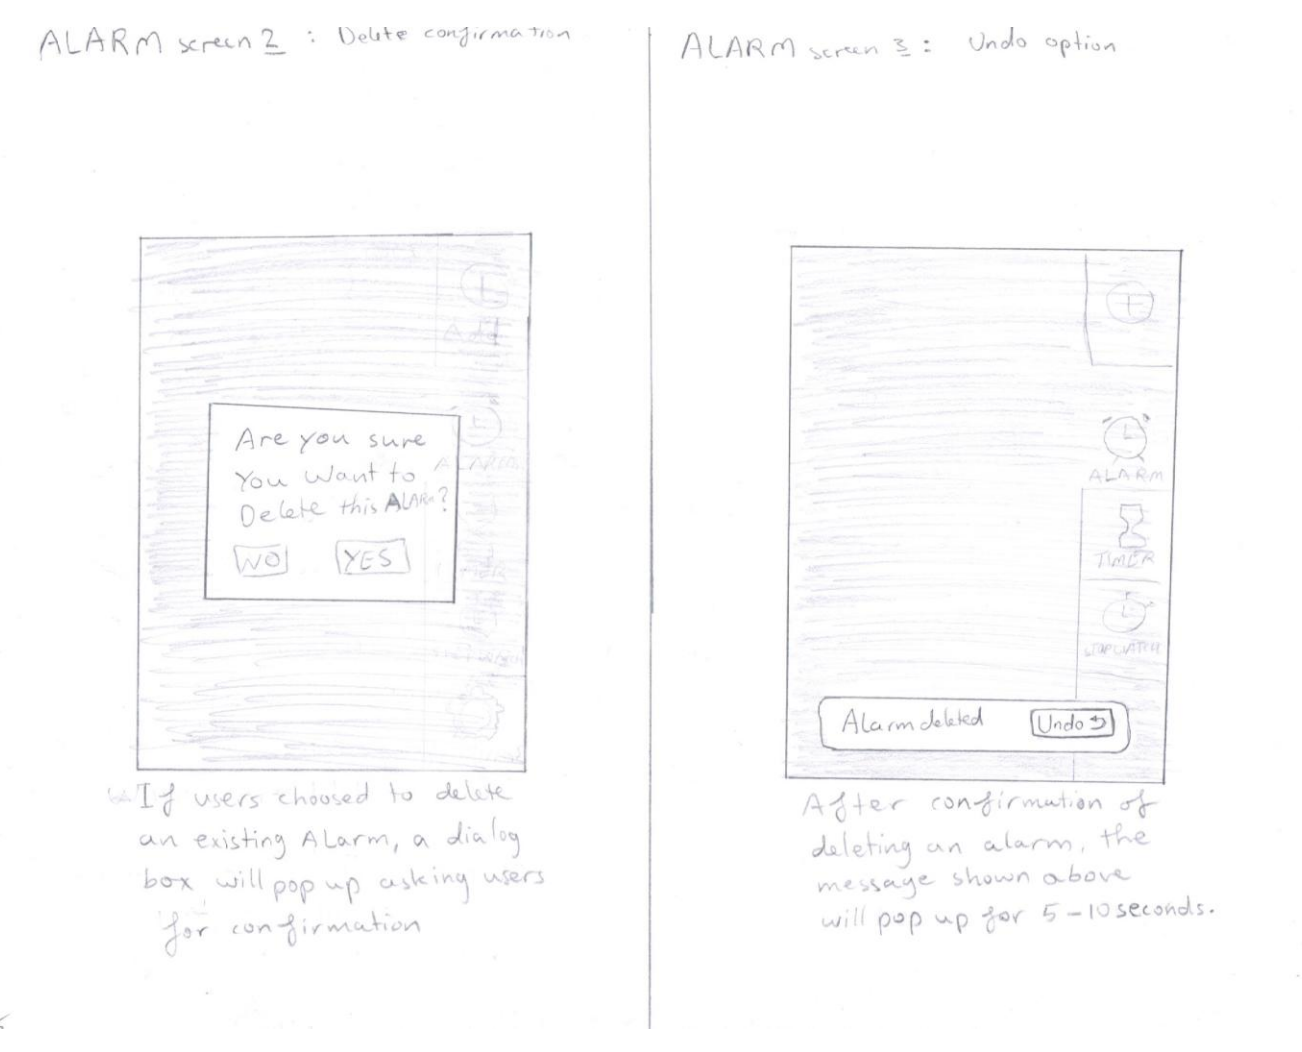 ALARM screen 2 : Delete confirmation
Add
ALARM
Are you sure
You Want to
Delete this ALARM?
NO YES
If users choosed to delete
an existing ALarm, a dialog
box will pop up asking users
for confirmation
ALARM screen 3 : Undo option
ALARM
TIMER
STOPWATCH
Alarm deleted Undo
After confirmation of
deleting an alarm, the
message shown above
will pop up for 5-10 seconds.